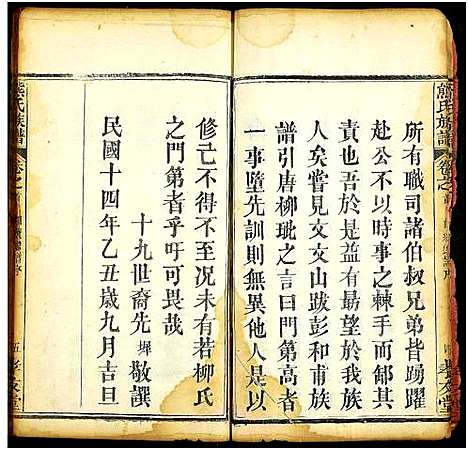 熊氏族譜 卷之首
所有職司諸伯叔兄弟皆踴躍
赴公不以時事之棘手而郤其
步吾於是益有最望於我族
人矣嘗見文文山跋彭和甫族
譜引唐柳玭之言曰門第高者
一事墮先訓則無異他人是以
修己不得不至况未有若柳氏
之門第者乎吁可畏哉
十九世裔先墀敬譔
民國十四年乙丑歲九月吉旦
熊氏族譜 卷之首
五 孝友堂